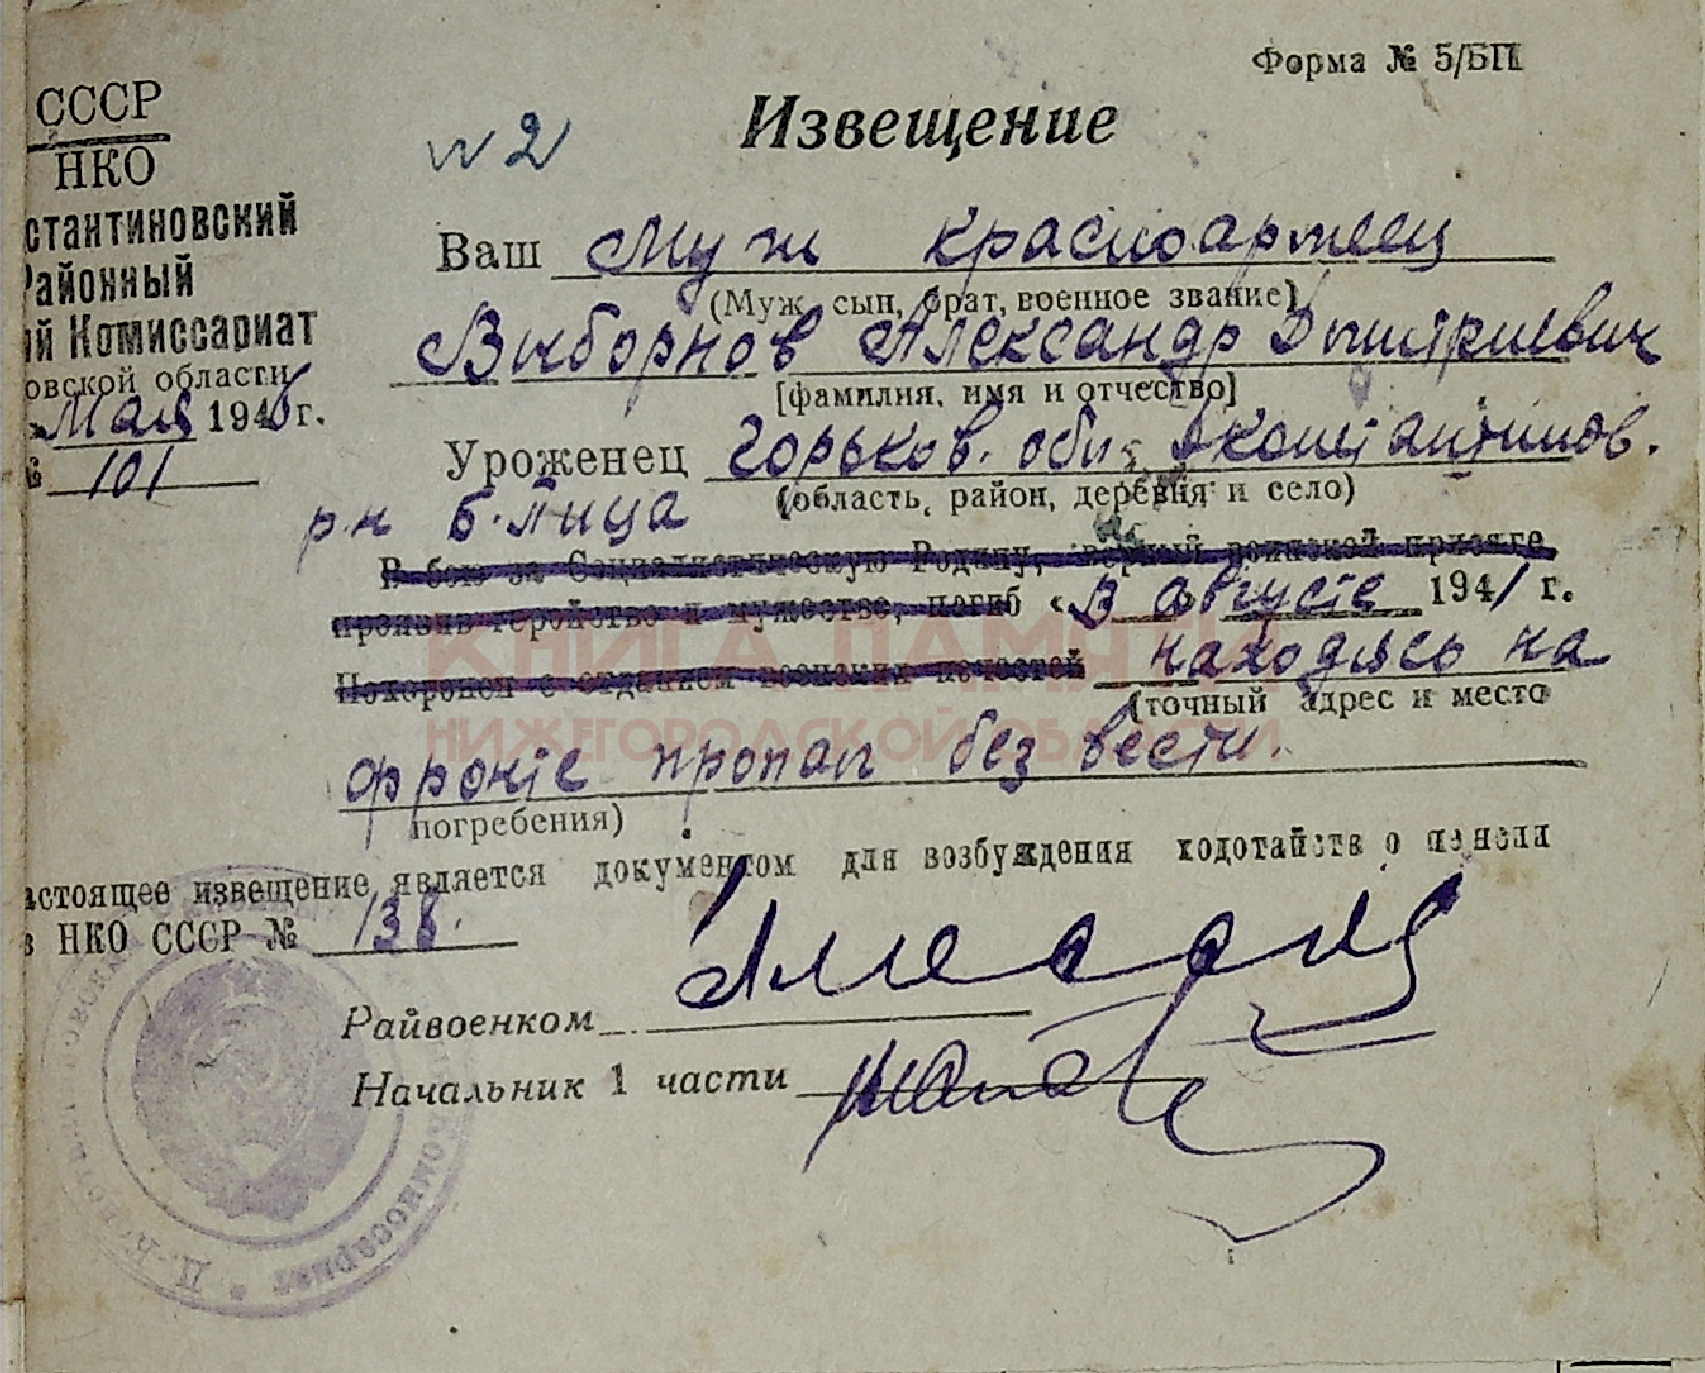 Форма № 5/БП
СССР
НКО
стантиновский
Районный
ий Комиссариат
овской области
Мая 194 г.
№ 101
№ 2
Извещение
Ваш Муж красноармеец
(Муж, сын, брат, военное звание)
Выборнов Александр Дмитриевич
[фамилия, имя и отчество]
Уроженец Горьков. обл. Дконстантинов.
(область, район, деревня и село)
р-н Б.Пица
В бою за Социалистическую Родину, верный воинской присяге
проявив геройство и мужество, погиб «В августе 1941 г.
Похоронен с отданием военных почестей находясь на
(точный адрес и место
фронте пропал без вести.
погребения)
астоящее извещение является документом для возбуждения ходотайств о пенсии
в НКО СССР № 138.
Райвоенком
Начальник 1 части
КНИГА ПАМЯТИ
НИЖЕГОРОДСКОЙ ОБЛАСТИ